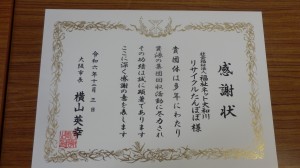 感謝状
社会福祉法人 福祉ネット大和川
リサイクルたんぽぽ 様
貴団体は多年にわたり
資源の集団回収活動に尽力され
その功績は誠に顕著であります
ここに深く感謝の意を表します
令和六年十二月三日
大阪市長 横山英幸